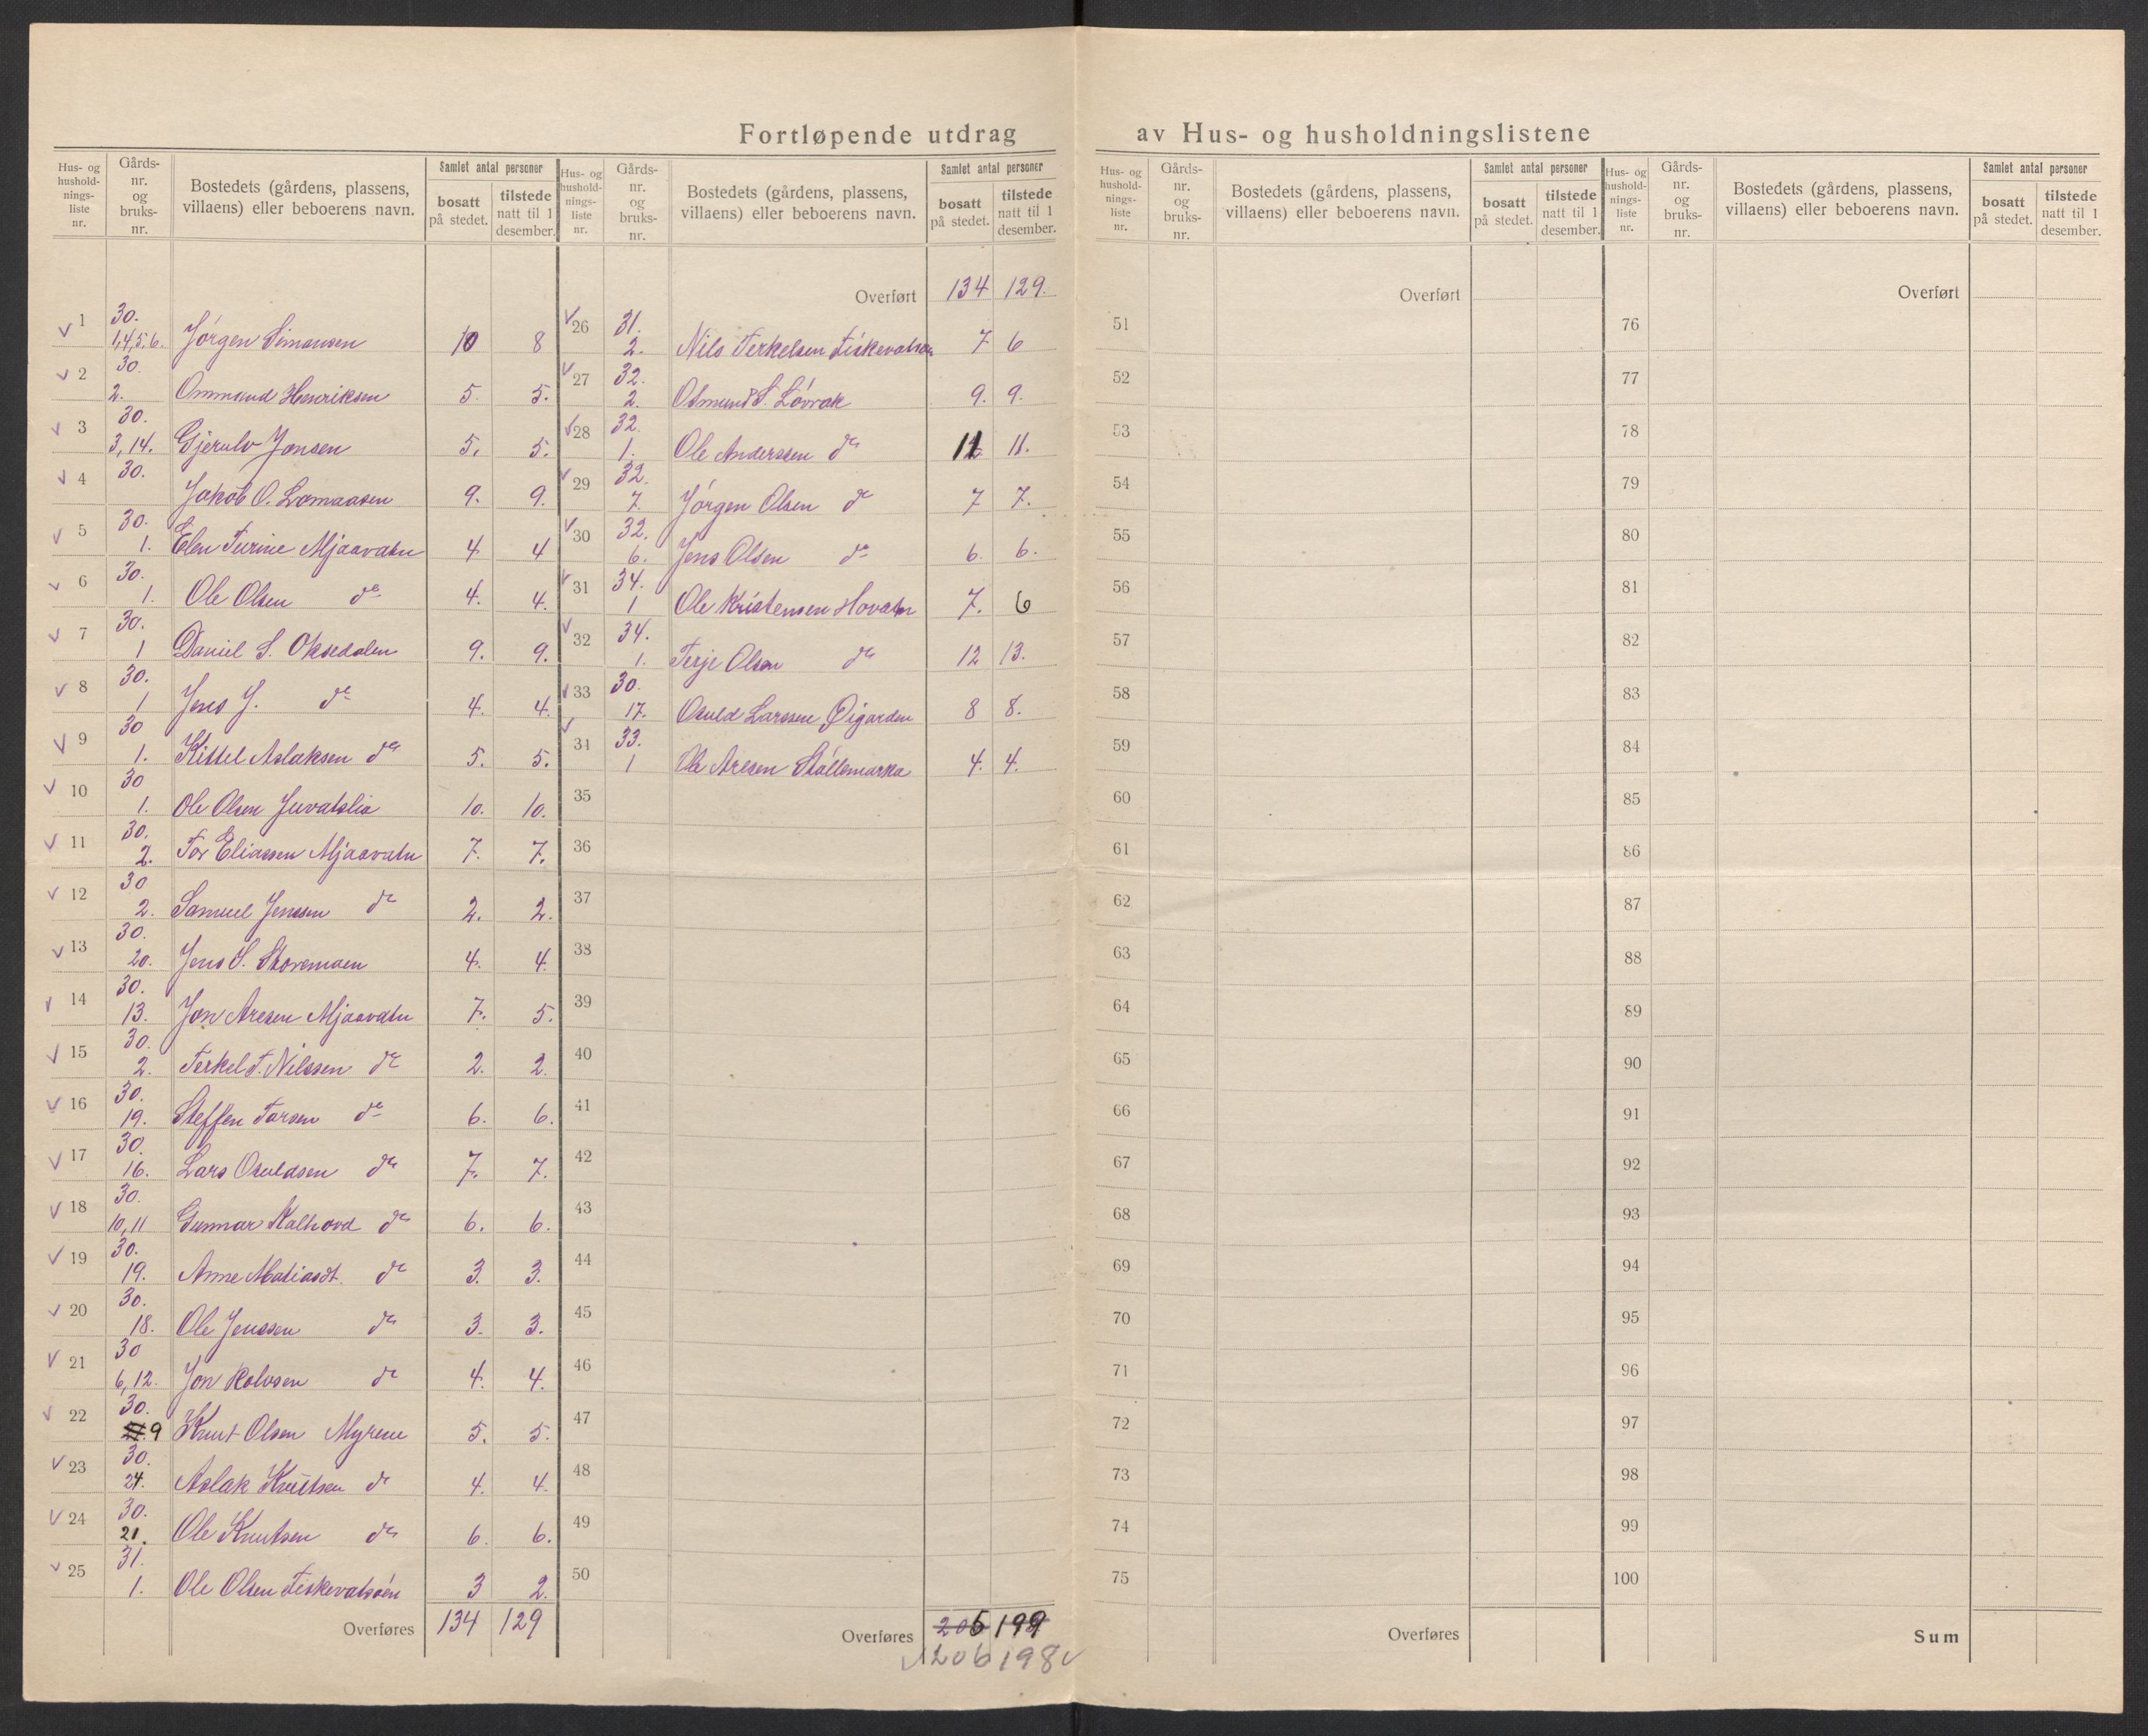 Fortløpende utdrag av Hus- og husholdningslistene
Hus- og husholdnings- liste nr. | Gårds- nr. og bruks- nr. | Bostedets (gårdens, plassens, villaens) eller beboerens navn. | Samlet antal personer | bosatt på stedet. | tilstede natt til 1 desember.
1 30. 1,4,5,6. Jørgen Simonsen 10 8
2 30. 2. Ommund Henriksen 5. 5.
3 30. 3,14. Gjerulv Jonsen 5. 5.
4 30. Jakob O. Lomaasen 9. 9.
5 30. 1. Elen Turine Mjaavatn 4 4
6 30. 1. Ole Olsen do 4. 4.
7 30. 1 Daniel S. Oksedalen 9. 9.
8 30. 1 Jens J. do 4. 4.
9 30 1. Kittel Aslaksen do 5. 5.
10 30 1. Ole Olsen Juvatslia 10. 10.
11 30. 2. Tor Eliassen Mjaavatn 7. 7.
12 30 2. Samuel Jenssen do 2. 2.
13 30. 20. Jens S. Storemoen 4. 4.
14 30. 13. Jon Aresen Mjaavatn 7. 5.
15 30. 2. Terkel T. Nilssen do 2. 2.
16 30. 19. Steffen Tarsen do 6. 6.
17 30. 16. Lars Osuldsen do 7. 7.
18 30. 10,11 Gunnar Kalhovd do 6. 6.
19 30. 19. Anne Matiasdt. do 3. 3.
20 30. 18. Ole Jenssen do 3. 3.
21 30 6,12. Jon Rolvsen do 4. 4.
22 30. 9 Knut Olsen Myrene 5. 5.
23 30. 24. Aslak Knutsen do 4. 4.
24 30. 21. Ole Knutsen do 6. 6.
25 31. 1. Ole Olsen Fiskevatsøen 3 2.
Overføres 134 129
Hus- og husholdnings- liste nr. | Gårds- nr. og bruks- nr. | Bostedets (gårdens, plassens, villaens) eller beboerens navn. | Samlet antal personer | bosatt på stedet. | tilstede natt til 1 desember.
Overført 134 129.
26 31. 2. Nils Terkelsen Fiskevatsøen 7 6
27 32. 2. Osmund S. Lövrak 9. 9.
28 32. 1. Ole Anderssen do 11 11.
29 32. 7. Jørgen Olsen do 7 7.
30 32. 6. Jens Olsen do 6. 6.
31 34. 1 Ole Kristensen Hovatn 7. 6
32 34. 1. Terje Olsen do 12 13.
33 30. 17. Osuld Larssen Øigarden 8 8.
34 33. 1 Ole Aresen Stállemarka 4. 4.
35
36
37
38
39
40
41
42
43
44
45
46
47
48
49
50
Overføres 205 199
206 198
Hus- og husholdnings- liste nr. | Gårds- nr. og bruks- nr. | Bostedets (gårdens, plassens, villaens) eller beboerens navn. | Samlet antal personer | bosatt på stedet. | tilstede natt til 1 desember.
Overført
51
52
53
54
55
56
57
58
59
60
61
62
63
64
65
66
67
68
69
70
71
72
73
74
75
Overføres
Hus- og husholdnings- liste nr. | Gårds- nr. og bruks- nr. | Bostedets (gårdens, plassens, villaens) eller beboerens navn. | Samlet antal personer | bosatt på stedet. | tilstede natt til 1 desember.
Overført
76
77
78
79
80
81
82
83
84
85
86
87
88
89
90
91
92
93
94
95
96
97
98
99
100
Sum